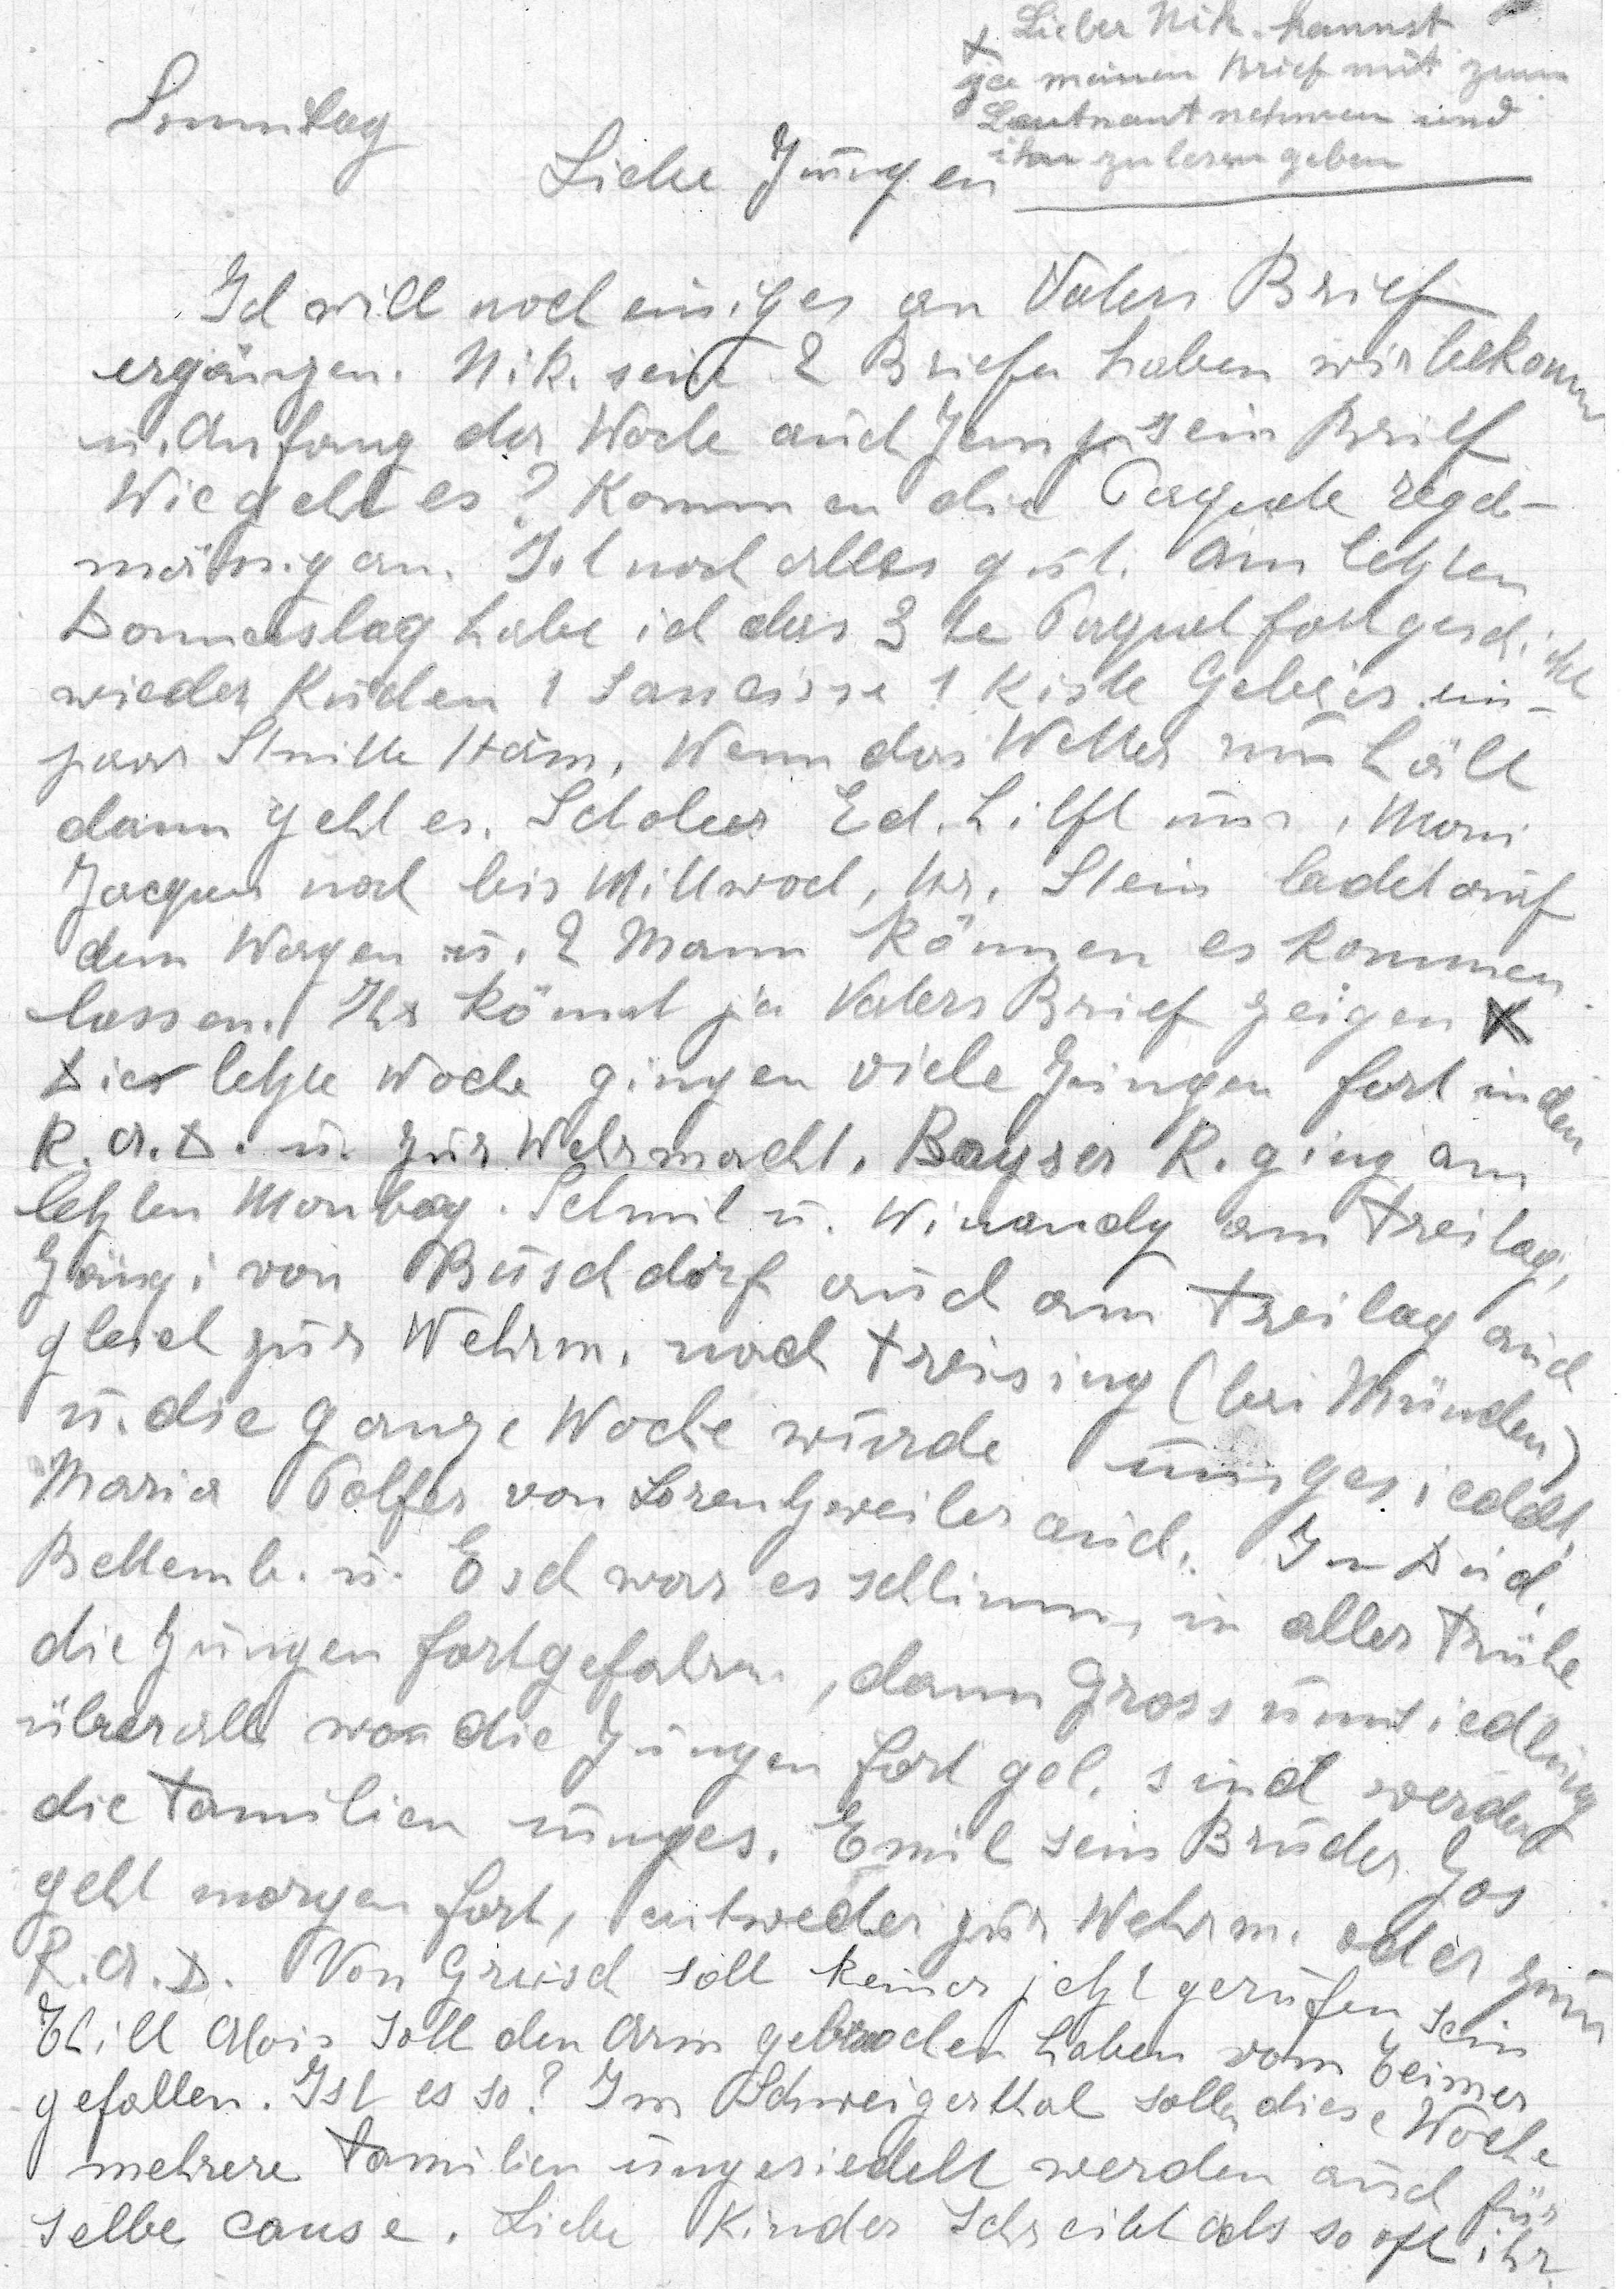 Lieber Nik. kannst
x ja meinen Brief mit zum
Leutnant nehmen und
ihm zu lesen geben
Sonntag
Liebe Jungen
Ich will noch einiges an Vaters Brief
ergänzen. Nik. seine 2 Briefe haben wir bekomm
u. Anfang der Woche auch Jemp sein Brief
Wie geht es? Kommen die Paquete regel-
mässig an. Ist noch alles gut. Am letzten
Donnerstag habe ich das 3 te Paquet fortgeschickt
wieder Kuchen 1 Saucisse 1 Kiste Gebeis ein-
paar Stnitte Ham. Wenn das Wetter nun hält
dann geht es. Schober Ed. hilft uns, Moni
Jacques noch bis Mittwoch, Hr. Stein ladet auf
dem Wagen u. 2 Mann können es kommen
lassen. Ihr könnt ja Vaters Brief zeigen X
Die letzte Woche gingen viele Jungen fort in den
R.A.D. u. zur Wehrmacht. Bayser R. ging am
letzten Montag. Schmit u. Winandy am Freitag,
Jängi von Buschdorf auch am Freitag auch
gleich zur Wehrm. nach Freising (bei München)
u. die ganze Woche wurde umgesiedelt,
Maria Polfer von Lorentzweiler auch. In Düd.
Bettemb. u. Esch war es schlimm, in aller Frühe
die Jungen fortgefahren, dann Grossumsiedlung
überall wo die Jungen fort gel. sind werden
die Familien umges. Emil sein Bruder Jos
geht morgen fort, entweder zur Wehrm. oder zum
R.A.D. Von Greisch soll keiner jetzt gerufen sein
Thill Alois soll den Arm gebrochen haben vom Eeimer
gefallen. Ist es so? Im Schweigerthal sollen diese Woche
mehrere Familien umgesiedelt werden auch für
selbe cause. Liebe Kinder schreibt als so oft ihr